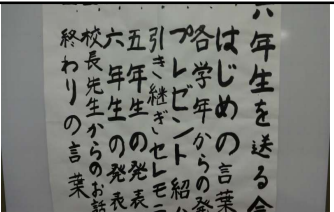 六年生を送る会
はじめの言葉
各学年からの発
プレゼント紹介
引き継ぎセレモニ
五年生の発表
六年生の発表
校長先生からのお話
終わりの言葉